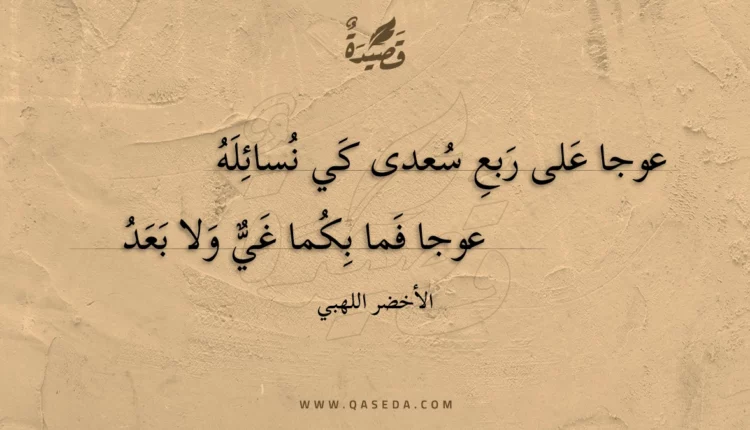 قَصِيْدَةٌ
عوجا عَلى رَبعِ سُعدى كَي نُسائِلَهُ
عوجا فَما بِكُما غَيٌّ وَلا بَعَدُ
الأخضر اللهبي
WWW.QASEDA.COM